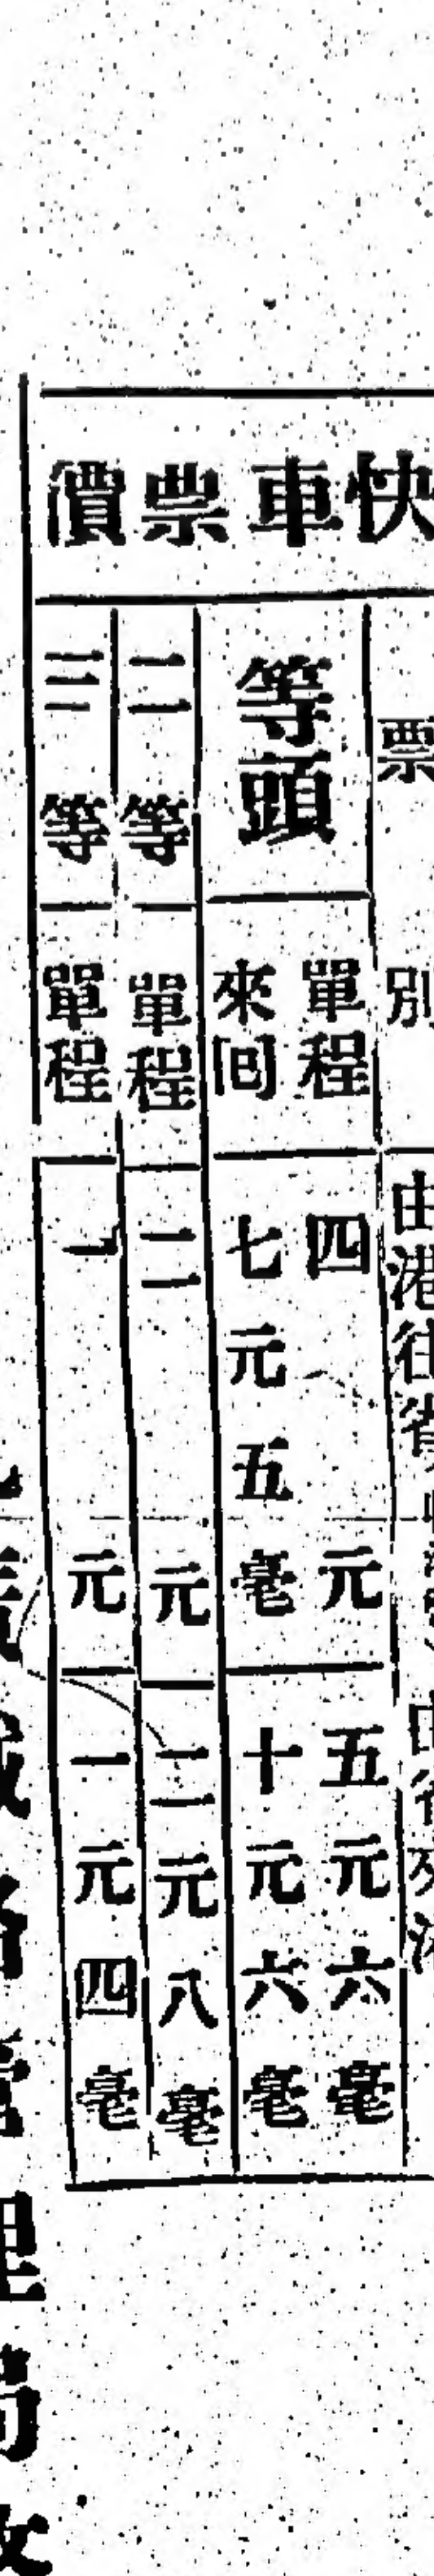 快車票價
票別 由港往省
頭等 單程 四元 五元六毫
來回 七元五毫 十元六毫
二等 單程 二元 二元八毫
三等 單程 一元 一元四毫